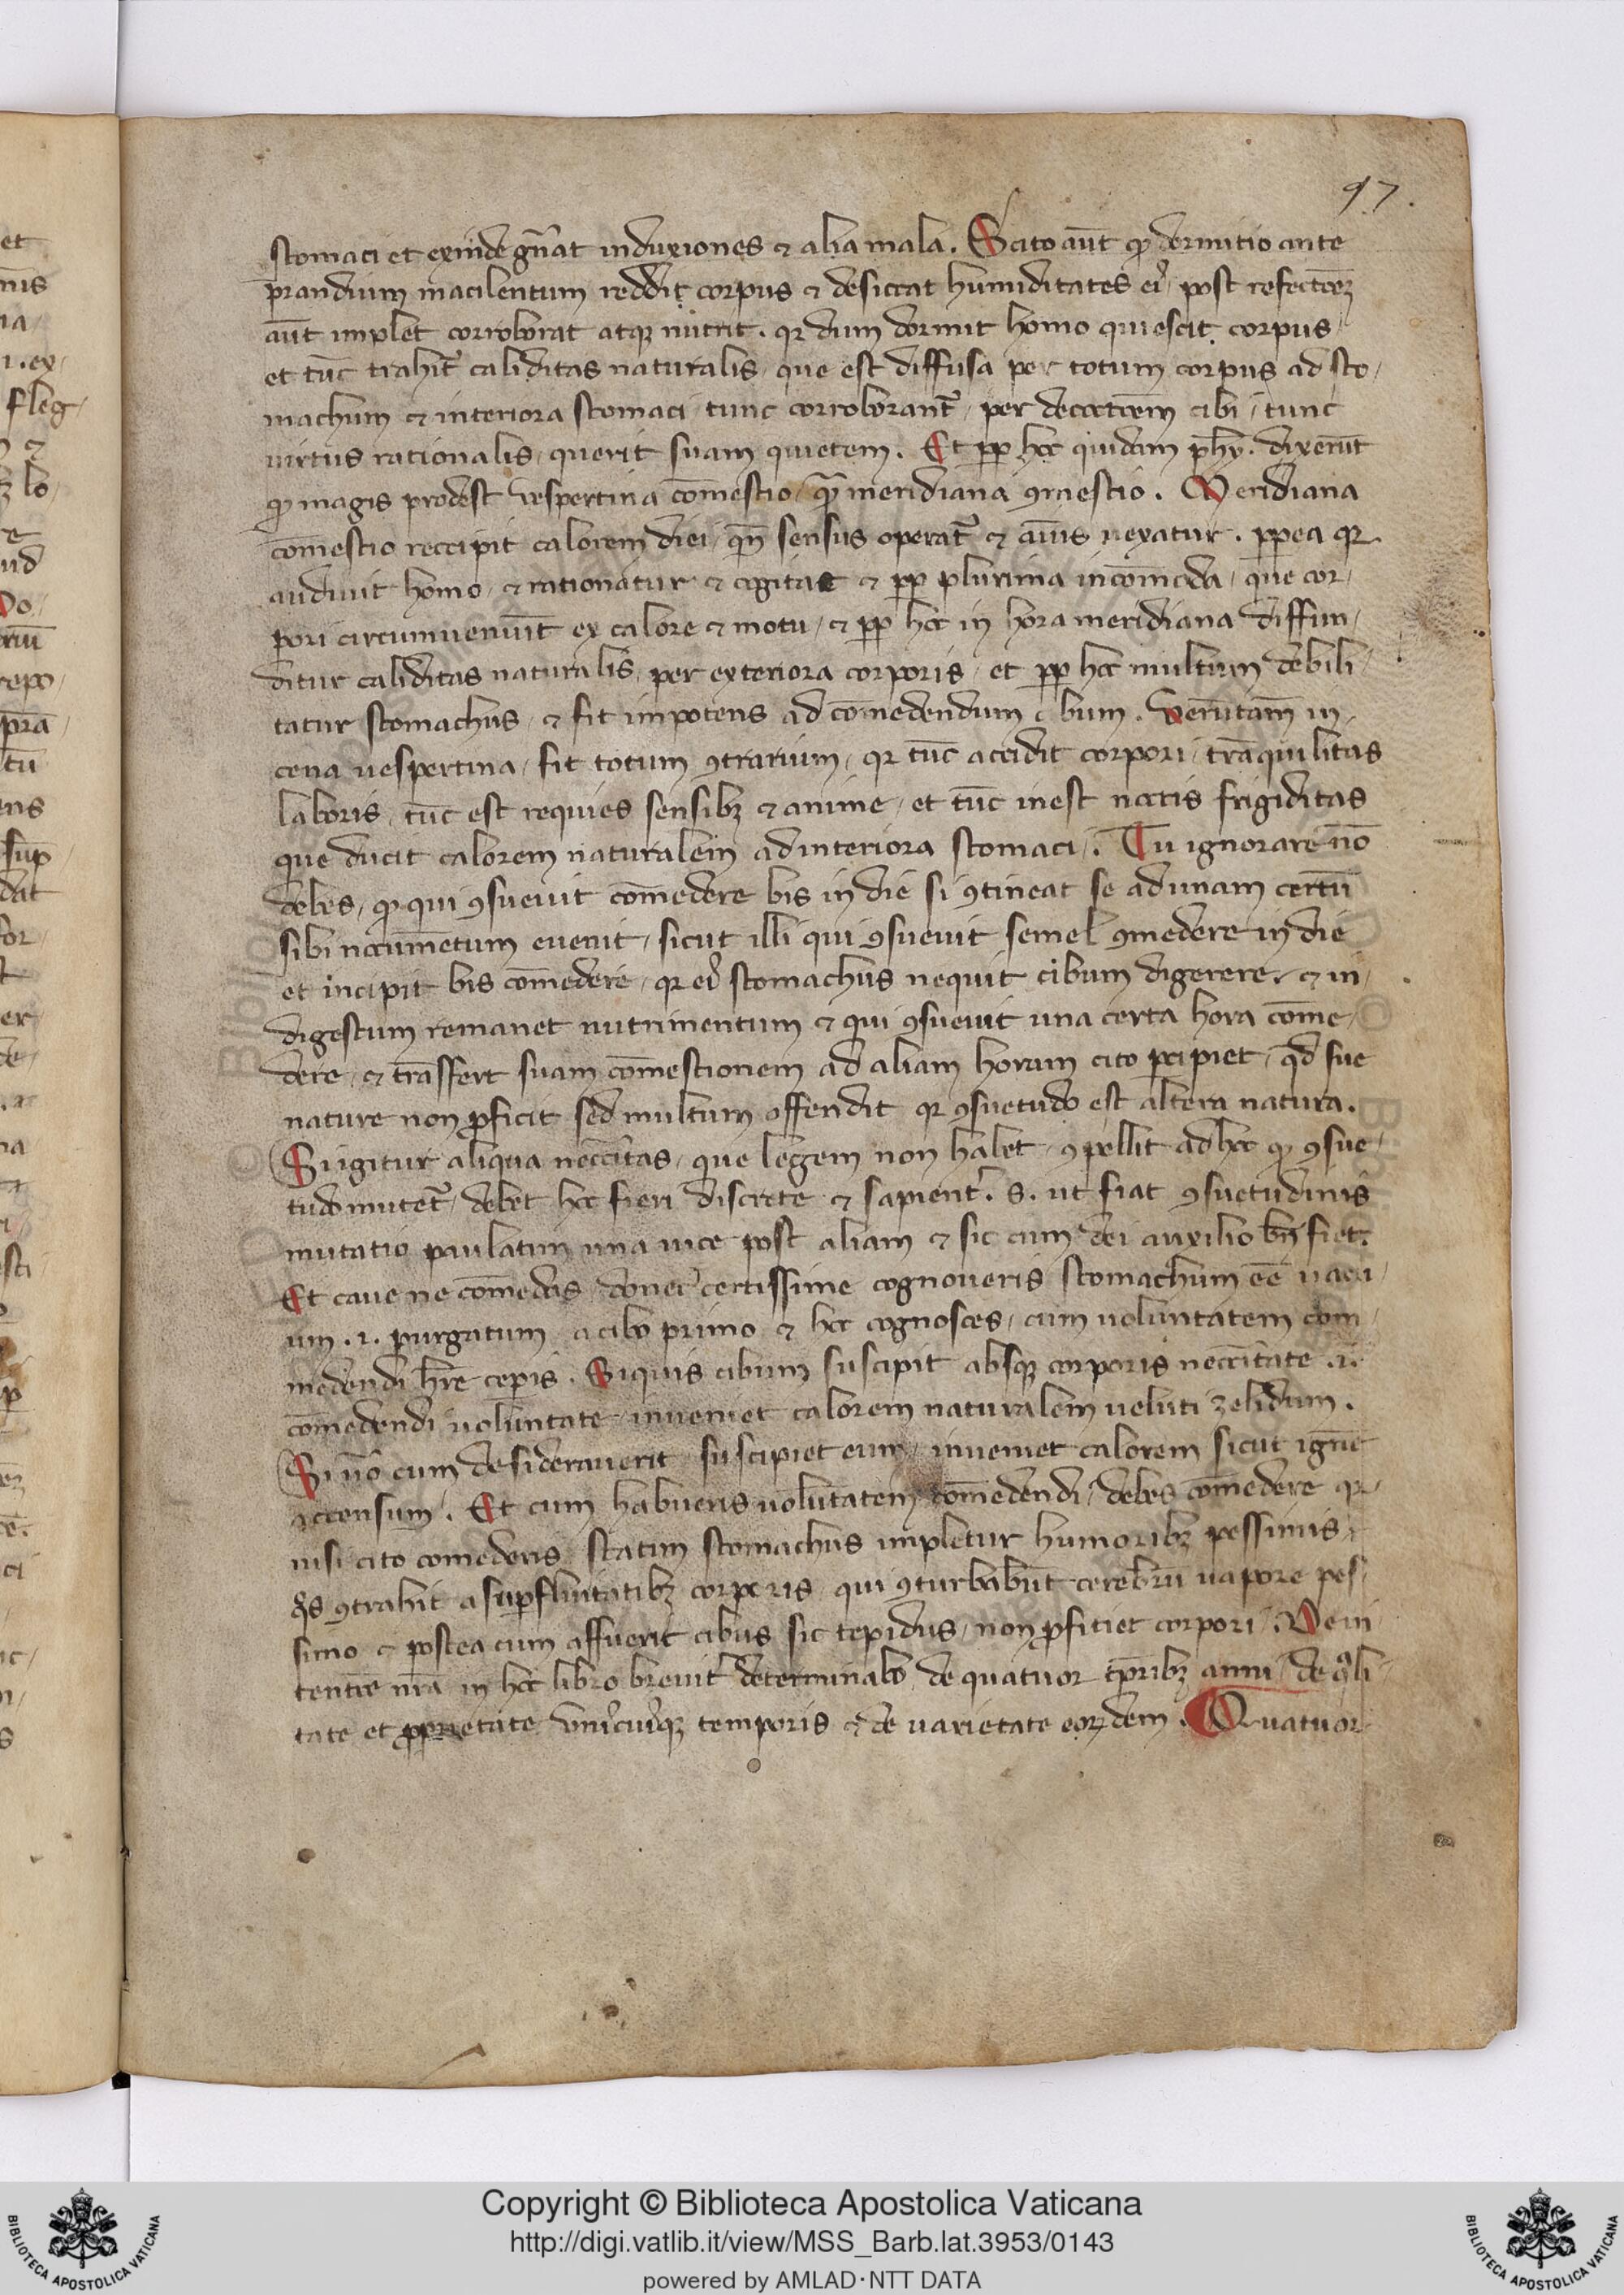 97.
stomaci et exinde gn̄at induxiones ⁊ alia mala. Scito aūt ꝙ dormitio ante
prandium macilentum reddit corpus ⁊ desiccat humiditates ei᾽ post refectōeꝫ
aūt implet corroborat atqꝫ nutrit. qꝛ dum dormit homo quiescit corpus
et tūc trahit᾽ caliditas naturalis que est diffusa per totum corpus ad sto/
machum ⁊ interiora stomaci tunc corroborant᾽ per decoctōem cibi / tunc
uirtus rationalis querit suam quietem. Et ꝓp hoc quidam phȳ. dixerūt
ꝙ magis prodest uespertina cōmestio qᷓ meridiana ꝯmestio. Meridiana
cōmestio reccipit calorem diei qn̄ sensus operat᾽ ⁊ aīus uexatur. ꝓpea qꝛ
audiuit homo ⁊ rationatur ⁊ cogitat ⁊ ꝓp plurima incōmoda que cor/
pori circumueniūt ex calore ⁊ motu ⁊ ꝓp hoc in hora meridiana diffun/
ditur caliditas naturalis per exteriora corporis et ꝓp hoc multum debili/
tatur stomachus ⁊ fit impotens ad cōmedendum cibum. Verūtam̄ in
cena uespertina fit totum ꝯtrarium qꝛ tūc accidit corpori trāquilitas
laboris tūc est requies sensibꝫ ⁊ anime et tūc inest noctis frigiditas
que ducit calorem naturalem ad interiora stomaci. Tu ignorare nō
debes ꝙ qui ꝯsueuit cōmedere bis in die si ꝯtineat se ad unam certū
sibi nocumētum euenit sicut illi qui ꝯsueuit semel ꝯmedere in die
et incipit bis cōmedere qꝛ ei᾽ stomachus nequit cibum digerere ⁊ in/
digestum remanet nutrimentum ⁊ qui ꝯsueuit una certa hora cōme/
dere ⁊ trāsfert suam cōmestionem ad aliam horam cito ꝑcipiet qd̄ sue
nature non ꝓficit sed multum offendit qꝛ ꝯsuetudo est altera natura.
Si igitur aliqua neccītas que legem non habet ꝯpellit ad hoc ꝙ ꝯsue/
tudo mutet᾽ debet hoc fieri discrete ⁊ sapient᾽. S. ut fiat ꝯsuetudinis
mutatio paulatim una uice post aliam ⁊ sic cum dei auxilio bn̄ fiet.
Et caue ne cōmedas donec certissime cognoueris stomachum eē uacu/
um .i. purgatum a cibo primo ⁊ hoc cognosces cum uoluntatem com
medendi hr̄e ceperis. Siquis cibum suscipit absqꝫ corporis neccītate .i.
cōmedendi uolūntate inueniet calorem naturalem ueluti zelidum.
Si uo᾽ cum desiderauerit suscipiet eum inueniet calorem sicut ignē
accensum. Et cum habueris uolūtatem cōmedendi debes cōmedere qꝛ
nisi cito comederis statim stomachus impletur humoribꝫ pessimis
qͦs ꝯtrahit a suꝑfluitatibꝫ corporis qui ꝯturbabūt cerebrū uapore pes/
simo ⁊ postea cum affuerit cibus sic tepidus non ꝓfitiet corpori. De in
tentōe nr̄a in hoc libro breuit᾽ determinabo de quatuor tꝑribꝫ anni de qͣli
tate et ꝓprietate uni᾽cui᾽qꝫ temporis ⁊ de uarietate eoꝝdem. Quatuor
Copyright © Biblioteca Apostolica Vaticana
http://digi.vatlib.it/view/MSS_Barb.lat.3953/0143
powered by AMLAD·NTT DATA
BIBLIOTECA APOSTOLICA VATICANA
BIBLIOTECA APOSTOLICA VATICANA